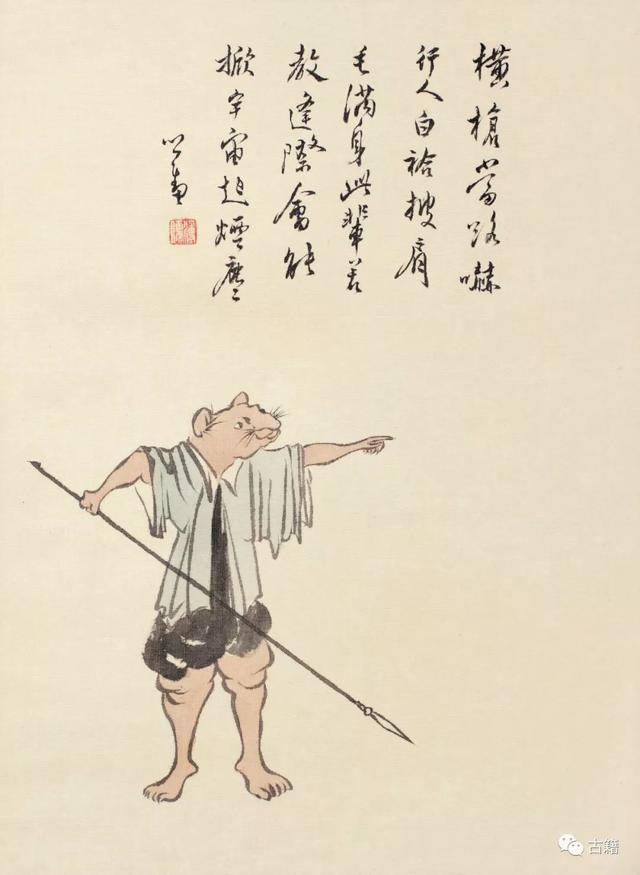 橫槍當路嚇
行人白袷披肩
毛滿身此輩若
教逢際會能
掀宇宙起煙塵
心畬
古籍